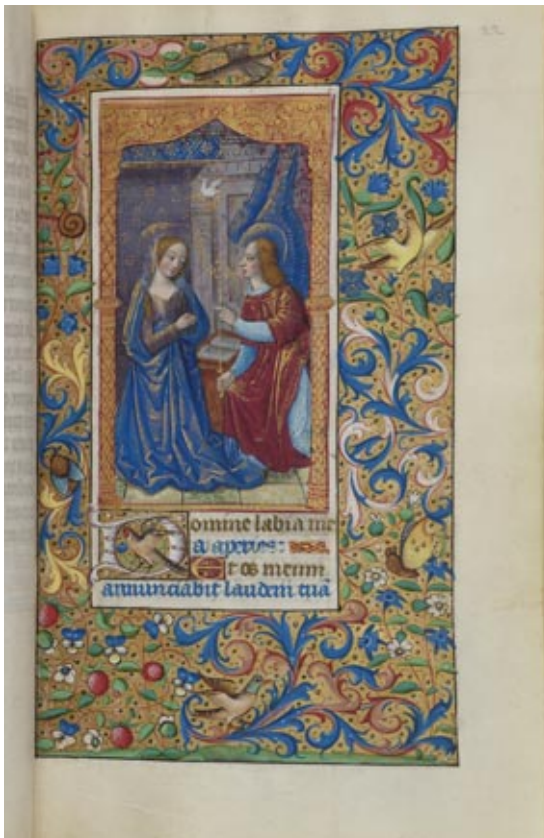 22
Domine labia me
a aperies:
Et os meum
annunciabit laudem tuā